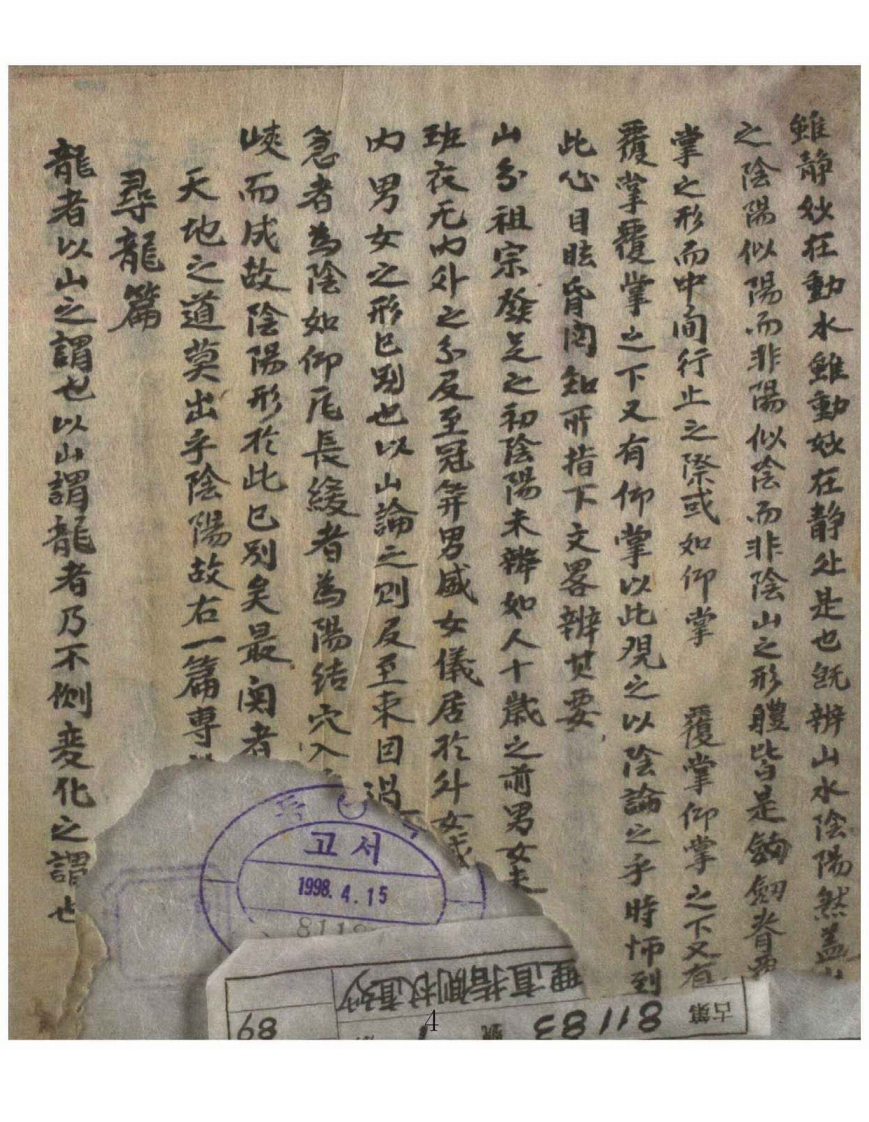 雖静妙在動水雖動妙在静处是也旣辨山水陰陽然盖山
之陰陽似陽而非陽似陰而非陰山之形軆皆是劔脊覆
掌之形而中间行止之際或如仰掌 覆掌仰掌之下又有
覆掌覆掌之下又有仰掌以此覌之以陰論之乎時師到
此心目眩昏罔知所指下文畧辨其要
山分祖宗發足之初陰陽未辨如人十歲之前男女
班衣无内外之分及至冠笄男威女儀居於外女
内男女之形已別也以山論之则及至束因過
急者為陰如仰尾長緩者為陽结穴入
峽而成故陰陽形於此已别矣最
天地之道莫出乎陰陽故右一篇専
尋龍篇
龍者以山之謂也以山謂龍者乃不侧変化之謂也
고서
1998. 4. 15
8118
理直指側杖直妙
89
古第 81183 號 1
4